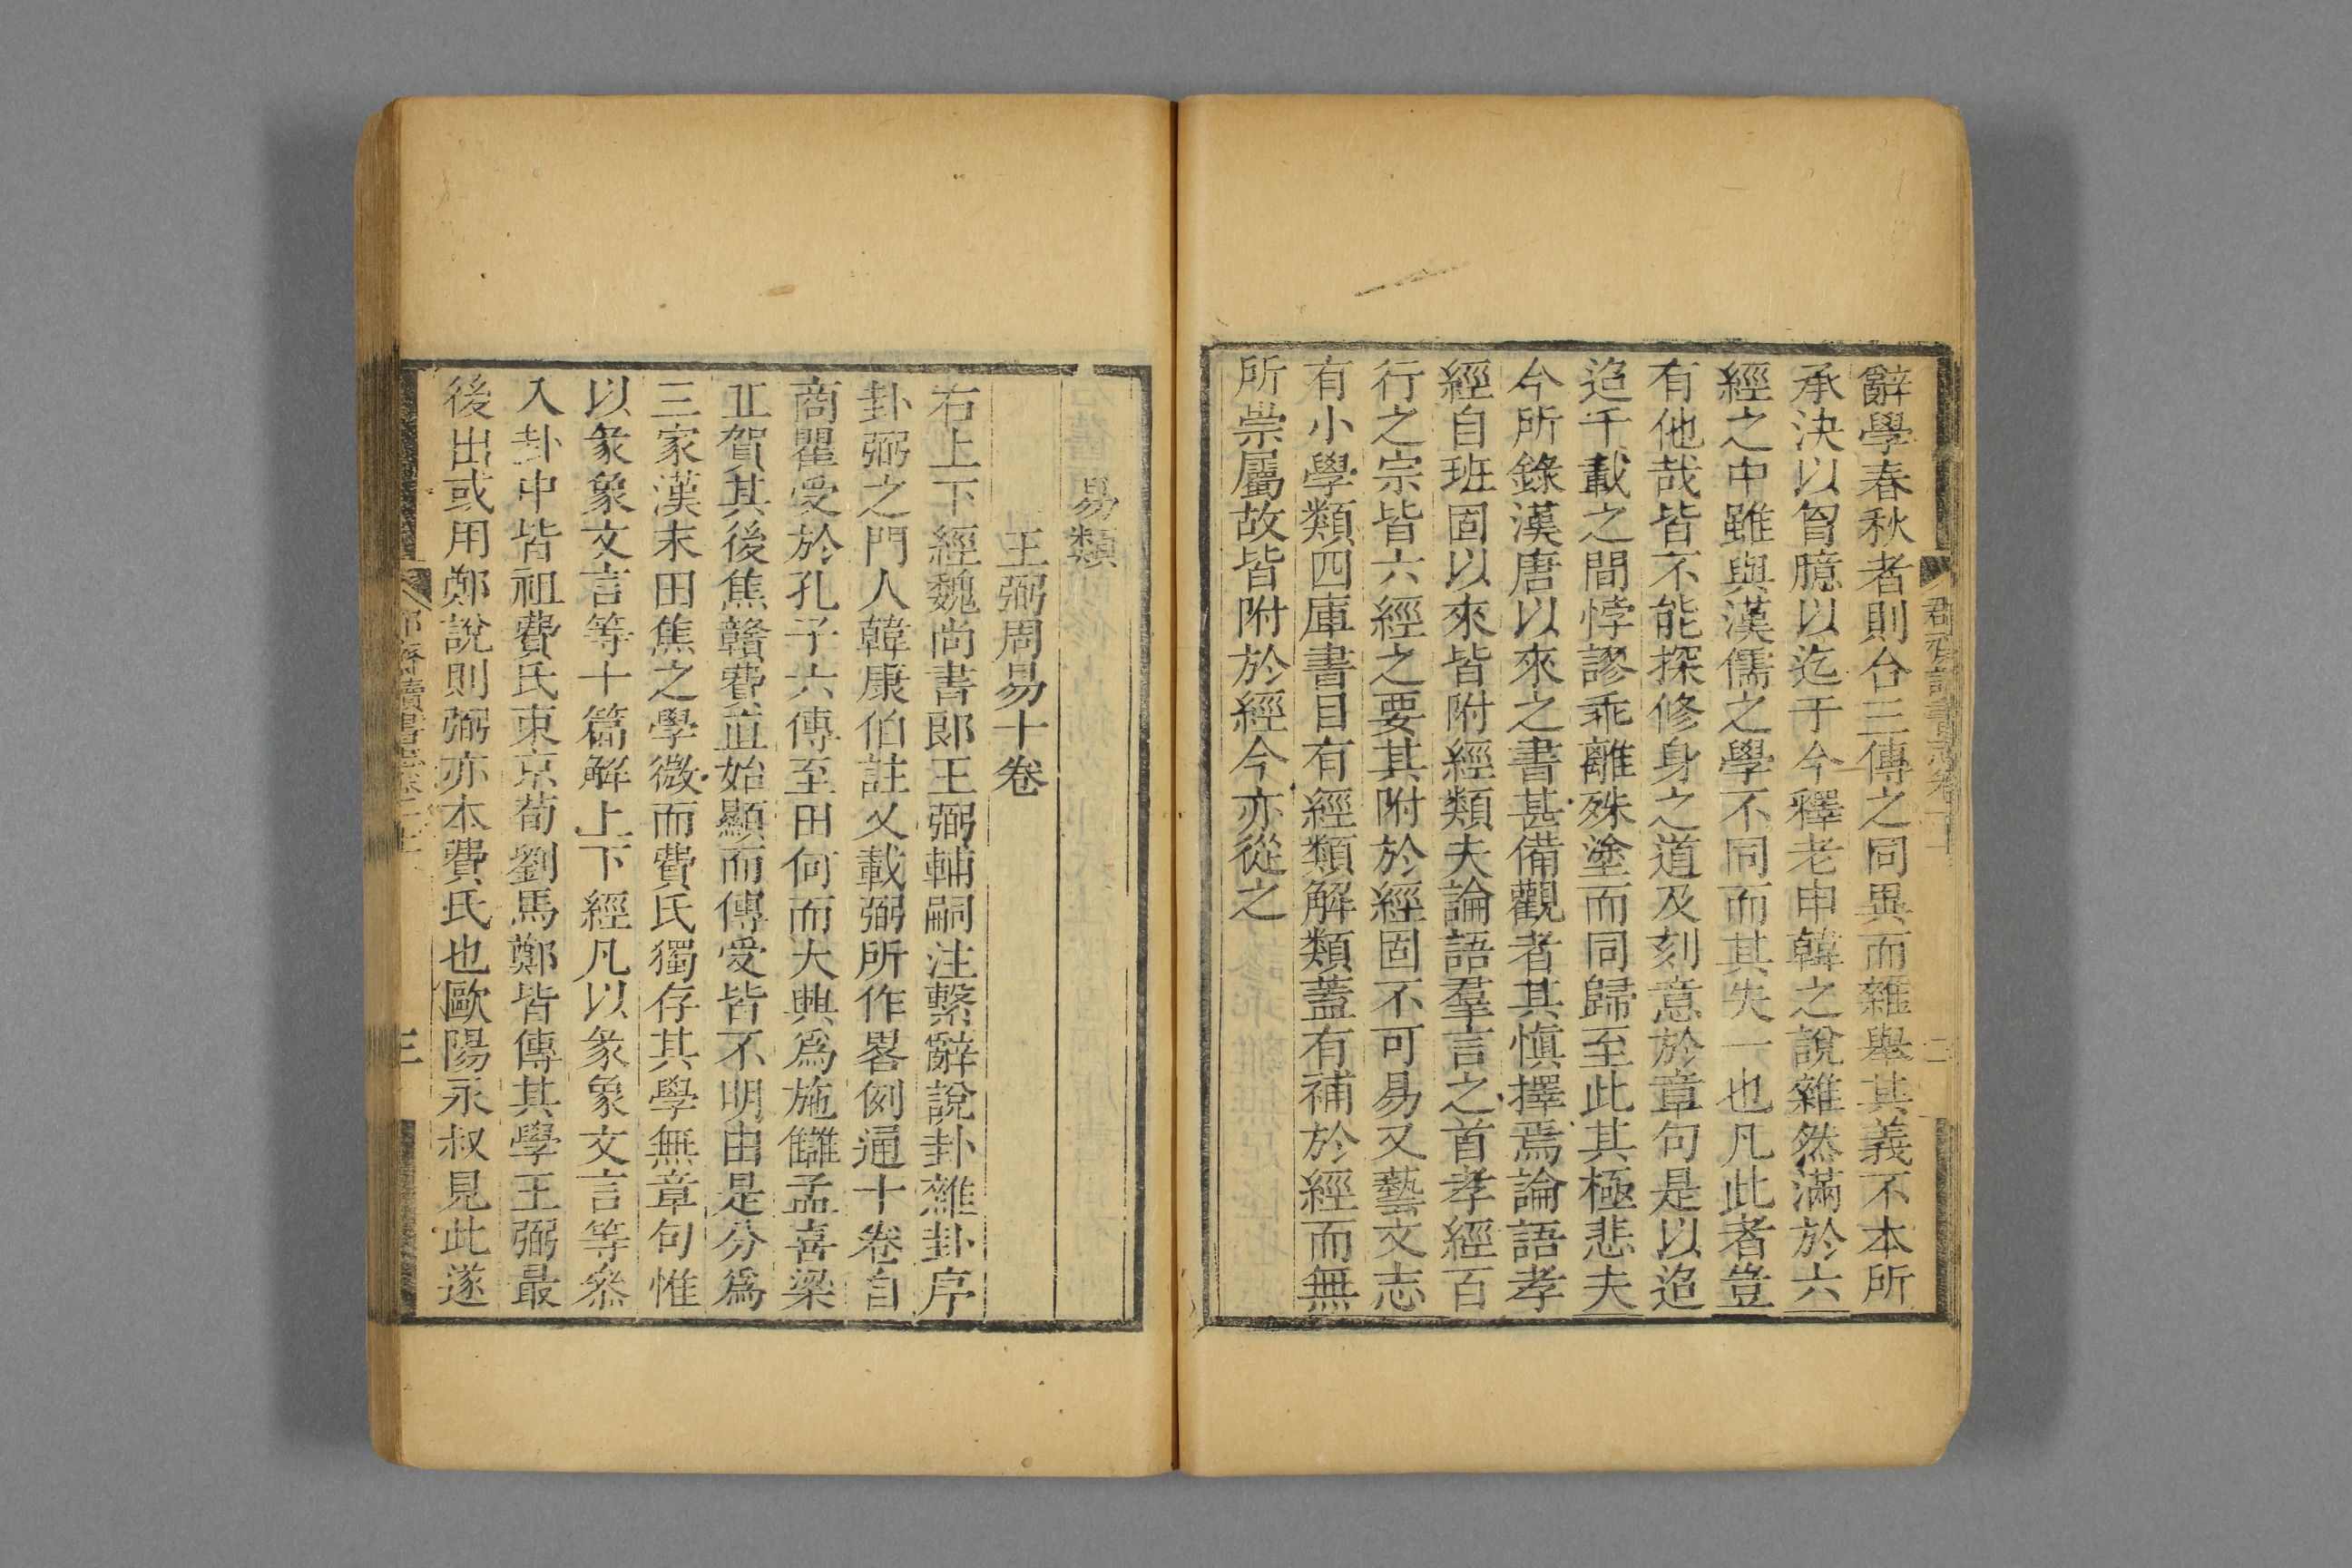 辭學春秋者則合三傳之同異而雜舉其義不本所
承決以胷臆以迄于今釋老申韓之說雜然滿於六
經之中雖與漢儒之學不同而其失一也凡此者豈
有他哉皆不能探修身之道及刻意於章句是以迨
迨千載之間悖謬乖離殊塗而同歸至此其極悲夫
今所錄漢唐以來之書甚備觀者其慎擇焉論語孝
經自班固以來皆附經類夫論語羣言之首孝經百
行之宗皆六經之要其附於經固不可易又藝文志
有小學類四庫書目有經類解類蓋有補於經而無
所崇屬故皆附於經今亦從之
易類
王弼周易十卷
右上下經魏尚書郎王弼輔嗣注繫辭說卦雜卦序
卦弼之門人韓康伯註又載弼所作畧例通十卷自
商瞿受於孔子六傳至田何而大興為施讎孟喜梁
丘賀其後焦贛費直始顯而傳受皆不明由是分為
三家漢末田焦之學微而費氏獨存其學無章句惟
以彖象文言等十篇解上下經凡以彖象文言等叅
入卦中皆祖費氏東京荀劉馬鄭皆傳其學王弼最
後出或用鄭說則弼亦本費氏也歐陽永叔見此遂
三